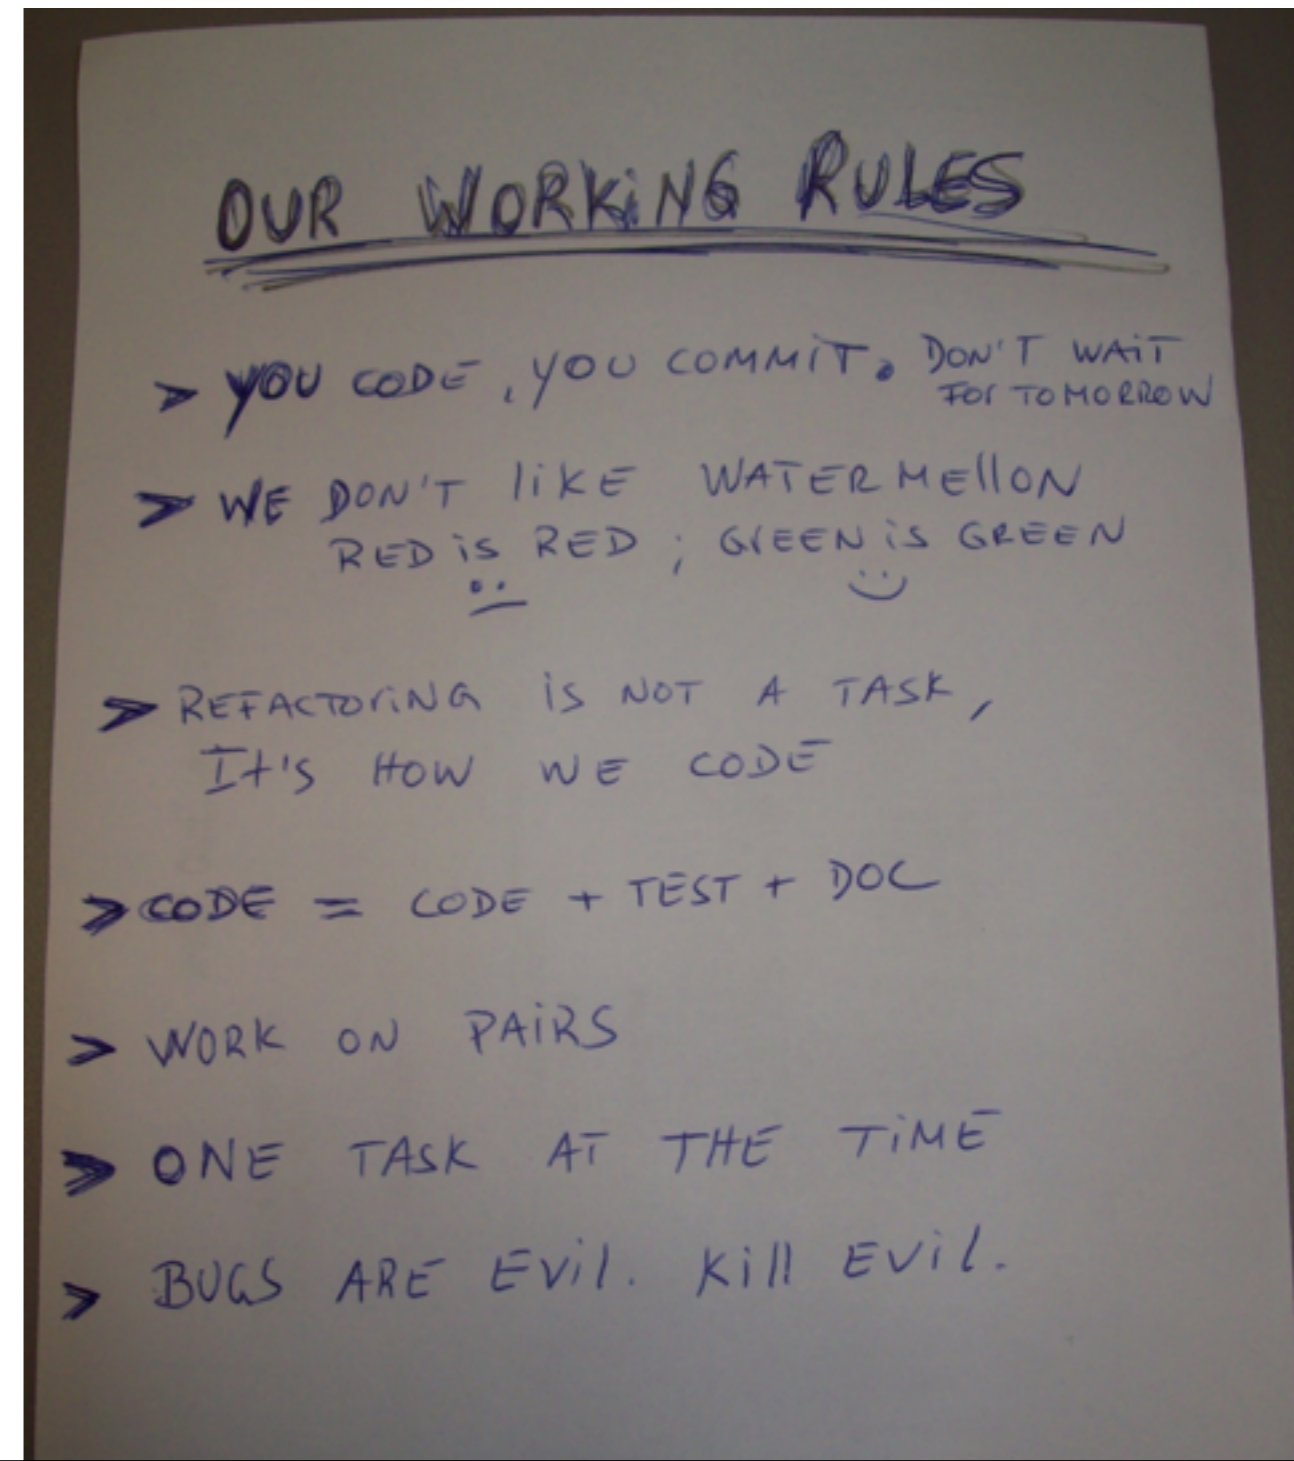 OUR WORKiNG RULES
> YOU CODE, YOU COMMiT. DON'T WAiT
FOr TOMORROW
> WE DON'T liKE WATERMEllON
RED iS RED ; GrEEN iS GREEN
> REFACTOriNG iS NOT A TASK,
It's HOW WE CODE
> CODE = CODE + TEST + DOC
> WORK ON PAiRS
> ONE TASK AT THE TiME
> BUGS ARE EVil. Kill EVil.